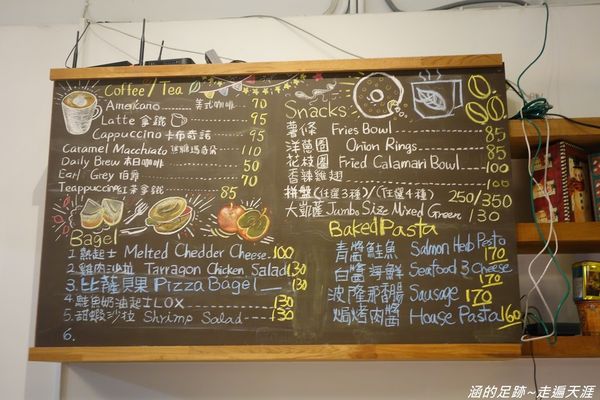 Coffee / Tea
Americano 美式咖啡 70
Latte 拿鐵 95
Cappuccino 卡布奇諾 95
Caramel Macchiato 焦糖瑪奇朵 110
Daily Brew 本日咖啡 50
Earl Grey 伯爵 70
Teappuccino 紅茶拿鐵 85
Bagel
1. 熱起士 Melted Chedder Cheese 100
2. 雞肉沙拉 Tarragon Chicken Salad 130
3. 比薩貝果 Pizza Bagel 130
4. 鮭魚奶油起士 LOX 130
5. 甜蝦沙拉 Shrimp Salad 130
6.
Snacks
薯條 Fries Bowl 85
洋蔥圈 Onion Rings 85
花枝圈 Fried Calamari Bowl 100
香辣雞翅 100
拼盤(任選3種)/(任選4種) 250/350
大凱薩 Jambo Size Mixed Green 130
Baked Pasta
青醬鮭魚 Salmon Herb Pesto 170
白醬海鮮 Seafood 3 Cheese 170
波隆那腸 Sausage 170
焗烤肉醬 House Pasta 160
涵的足跡~走遍天涯